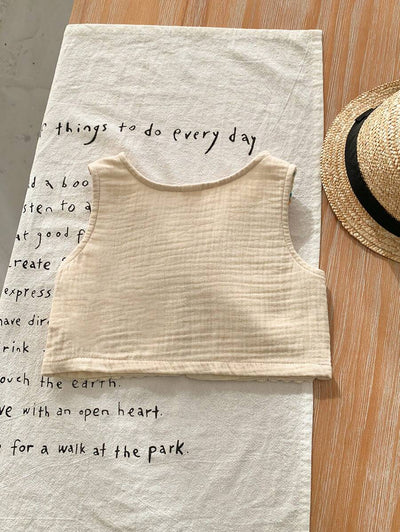 things to do every day
a boo
sten to a
at good f
reate
express
have dir
rink
ouch the earth.
ve with an open heart.
for a walk at the park.